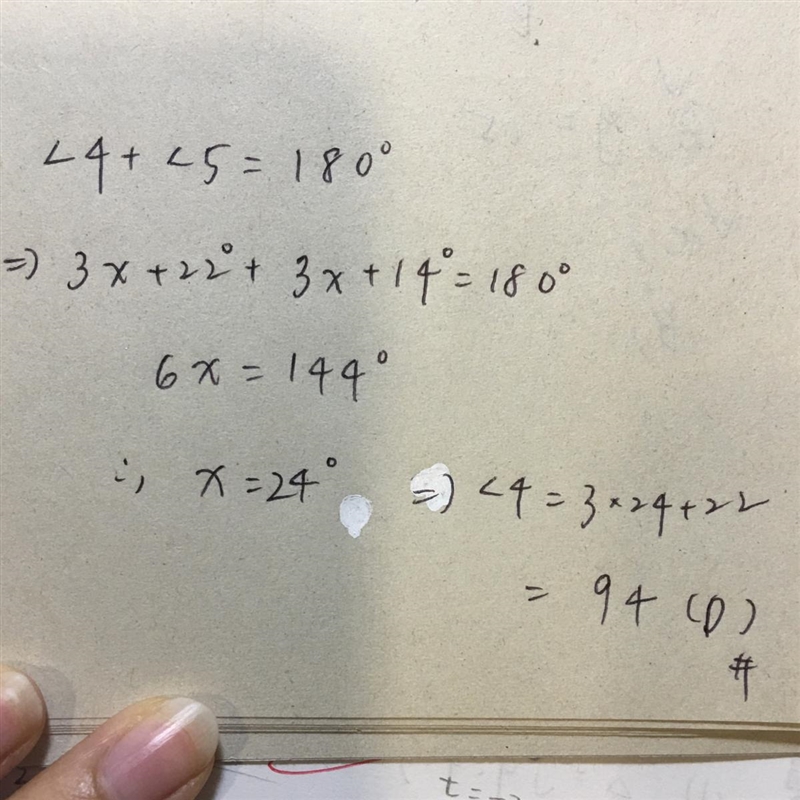 <4 + <5 = 180°
⇒ 3x + 22° + 3x + 14° = 180°
6x = 144°
∴ x = 24° ⇒ <4 = 3×24+22
= 94 (D)
#